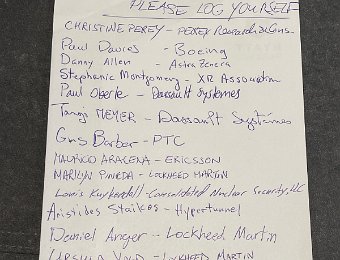 PLEASE LOG YOURSELF
CHRISTINE PEREY - PEREY Research & Cons.
Paul Davies - Boeing
Danny Allen - AstraZeneca
Stephanie Montgomery - XR Association
Paul Oberle - Dassault Systemes
MEYER - Dassault Systèmes
Gus Barber - PTC
MAURICO ARACENA - ERICSSON
MARILYN PINEDA - LOCKHEED MARTIN
Louis Kuykendall - Consolidated Nuclear Security, LLC
Aristides Staikos - Hypertunnel
Daniel Anger - Lockheed Martin
URSULA - LOCKHEED MARTIN